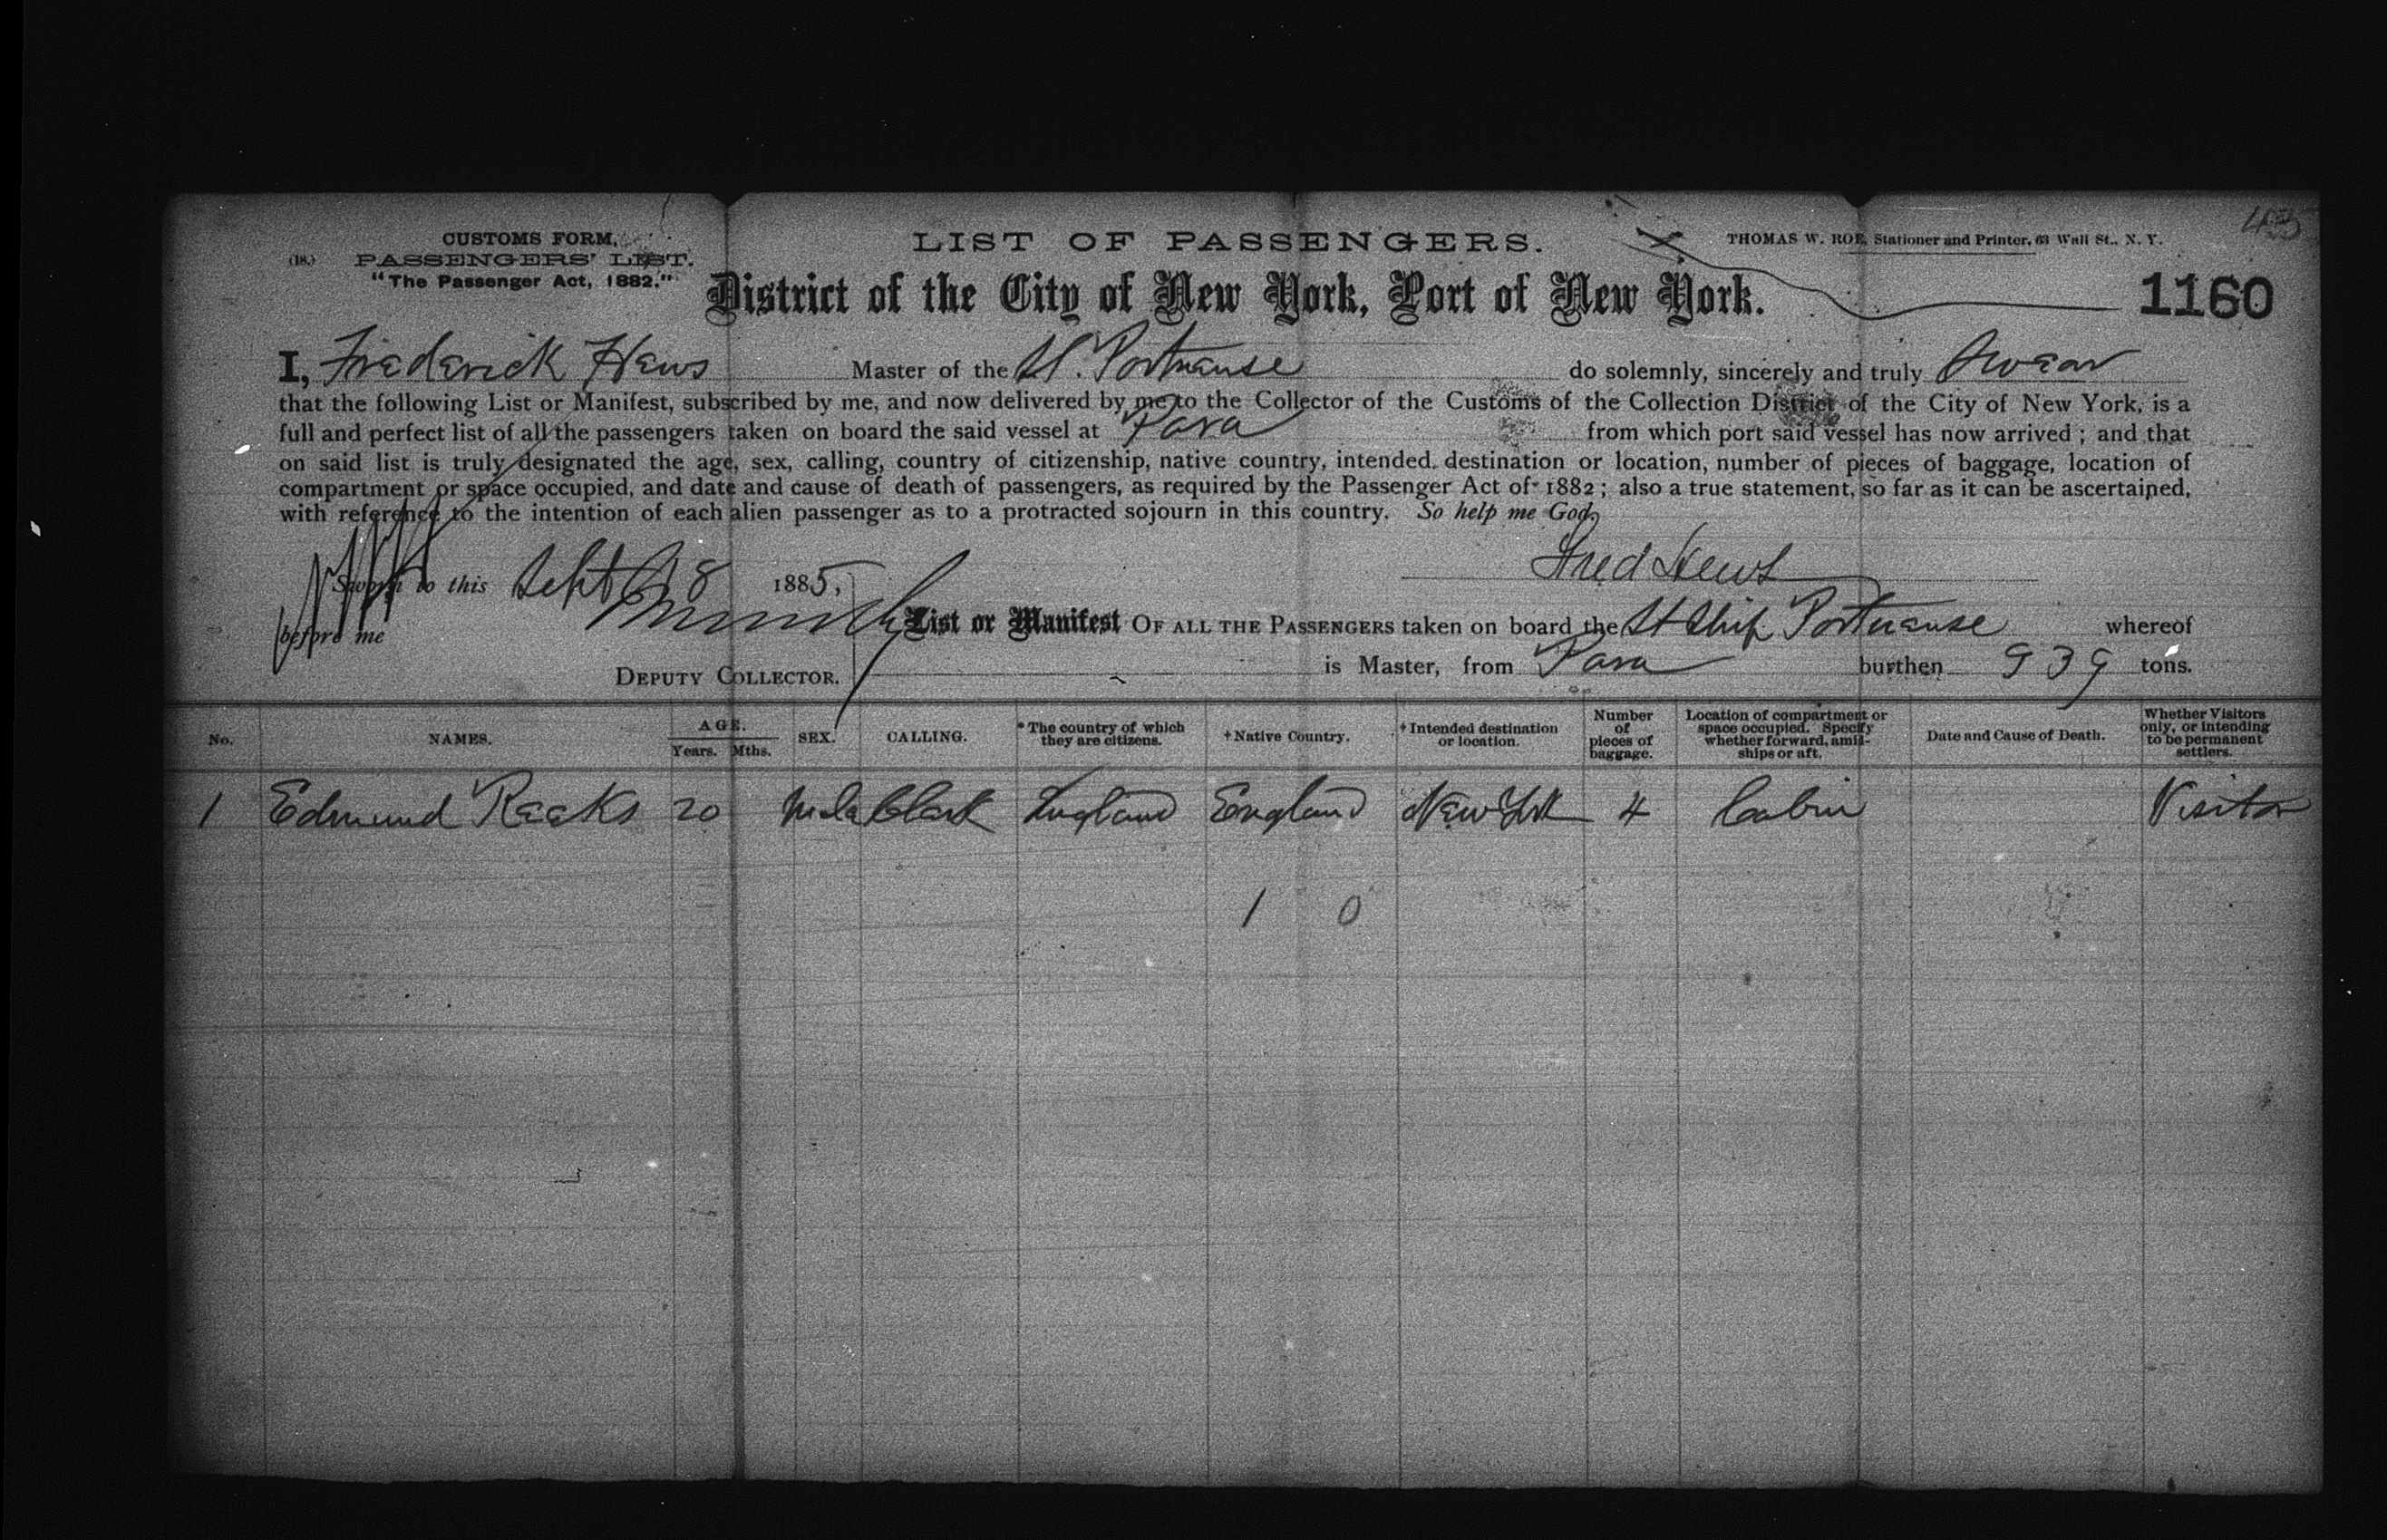 CUSTOMS FORM,
(18.) PASSENGERS' LIST.
"The Passenger Act, 1882."
LIST OF PASSENGERS.
THOMAS W. ROE, Stationer and Printer, 63 Wall St., N. Y.
District of the City of New York, Port of New York.
1160
I, Frederick Hews Master of the St. Portuense do solemnly, sincerely and truly Swear
that the following List or Manifest, subscribed by me, and now delivered by me to the Collector of the Customs of the Collection District of the City of New York, is a
full and perfect list of all the passengers taken on board the said vessel at Para from which port said vessel has now arrived; and that
on said list is truly designated the age, sex, calling, country of citizenship, native country, intended destination or location, number of pieces of baggage, location of
compartment or space occupied, and date and cause of death of passengers, as required by the Passenger Act of 1882; also a true statement, so far as it can be ascertained,
with reference to the intention of each alien passenger as to a protracted sojourn in this country. So help me God.
Fred Hews
Sworn to this Sept 8 1885,
before me
List or Manifest OF ALL THE PASSENGERS taken on board the St Ship Portuense whereof
DEPUTY COLLECTOR.
is Master, from Para burthen 939 tons.
No. NAMES. AGE. Years. Mths. SEX. CALLING. * The country of which they are citizens. † Native Country. † Intended destination or location. Number of pieces of baggage. Location of compartment or space occupied. Specify whether forward, amidships or aft. Date and Cause of Death. Whether Visitors only, or intending to be permanent settlers.
1 Edmund Reeks 20 Male Clerk England England New York 4 Cabin Visitor
1 0